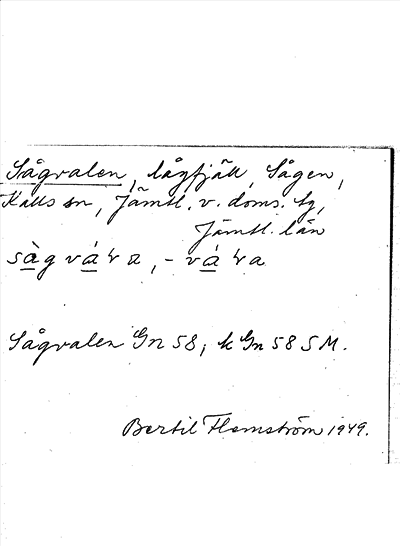 Sågvalen, lågfjäll, Sågen,
Kalls sn, Jämtl. v. doms. tg,
Jämtl. län
sàg vára, - vára
Sågvalen Gn 58; k Gn 58 SM.
Bertil Flemström 1949.